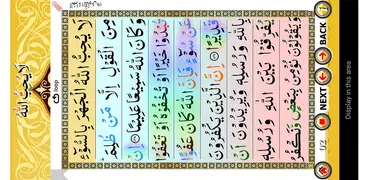 لا یحب اللہ
loop
لَا يُحِبُّ اللّٰهُ الْجَهْرَ بِالسُّوْٓءِ
مِنَ الْقَوْلِ اِلَّا مَنْ ظُلِمَ ؕ
وَكَانَ اللّٰهُ سَمِيْعًا عَلِيْمًا اِنْ
تُبْدُوْا خَيْرًا اَوْ تُخْفُوْهُ اَوْ تَعْفُوْا
عَنْ سُوْٓءٍ فَاِنَّ اللّٰهَ كَانَ عَفُوًّا
قَدِيْرًا اِنَّ الَّذِيْنَ يَكْفُرُوْنَ
بِاللّٰهِ وَرُسُلِهٖ وَيُرِيْدُوْنَ اَنْ
يُّفَرِّقُوْا بَيْنَ اللّٰهِ وَرُسُلِهٖ
وَيَقُوْلُوْنَ نُؤْمِنُ بِبَعْضٍ وَّنَكْفُرُ
1/2 NEXT BACK
Display in this area